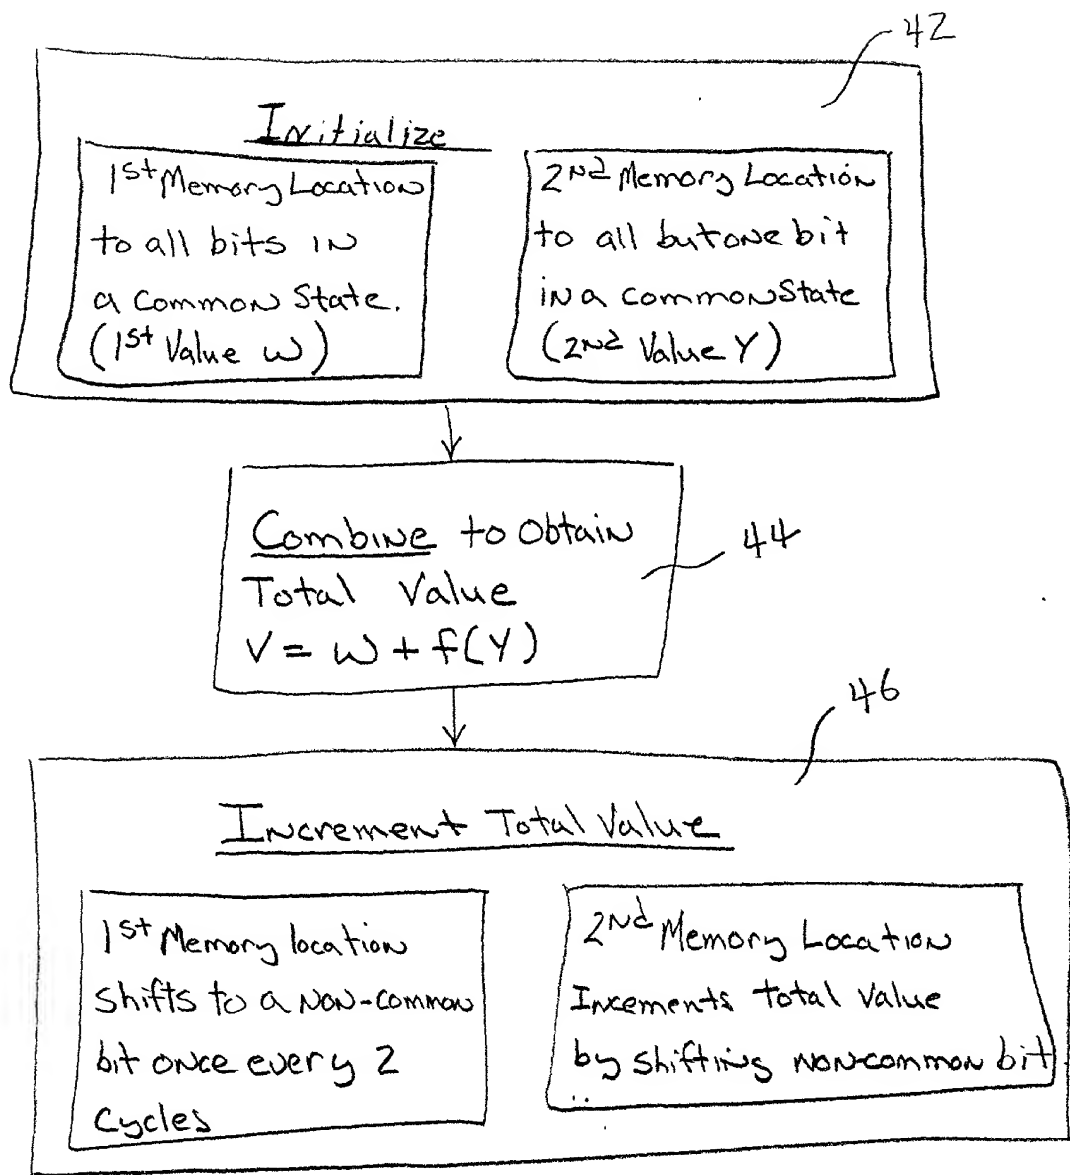 42
Initialize
1st Memory Location
to all bits in
a common State.
(1st Value W)
2nd Memory Location
to all but one bit
in a common State
(2nd Value Y)
Combine to Obtain
Total Value
V = W + f(Y)
44
46
Increment Total Value
1st Memory location
Shifts to a non-common
bit once every 2
Cycles
2nd Memory Location
Incements total value
by shifting non-common bit